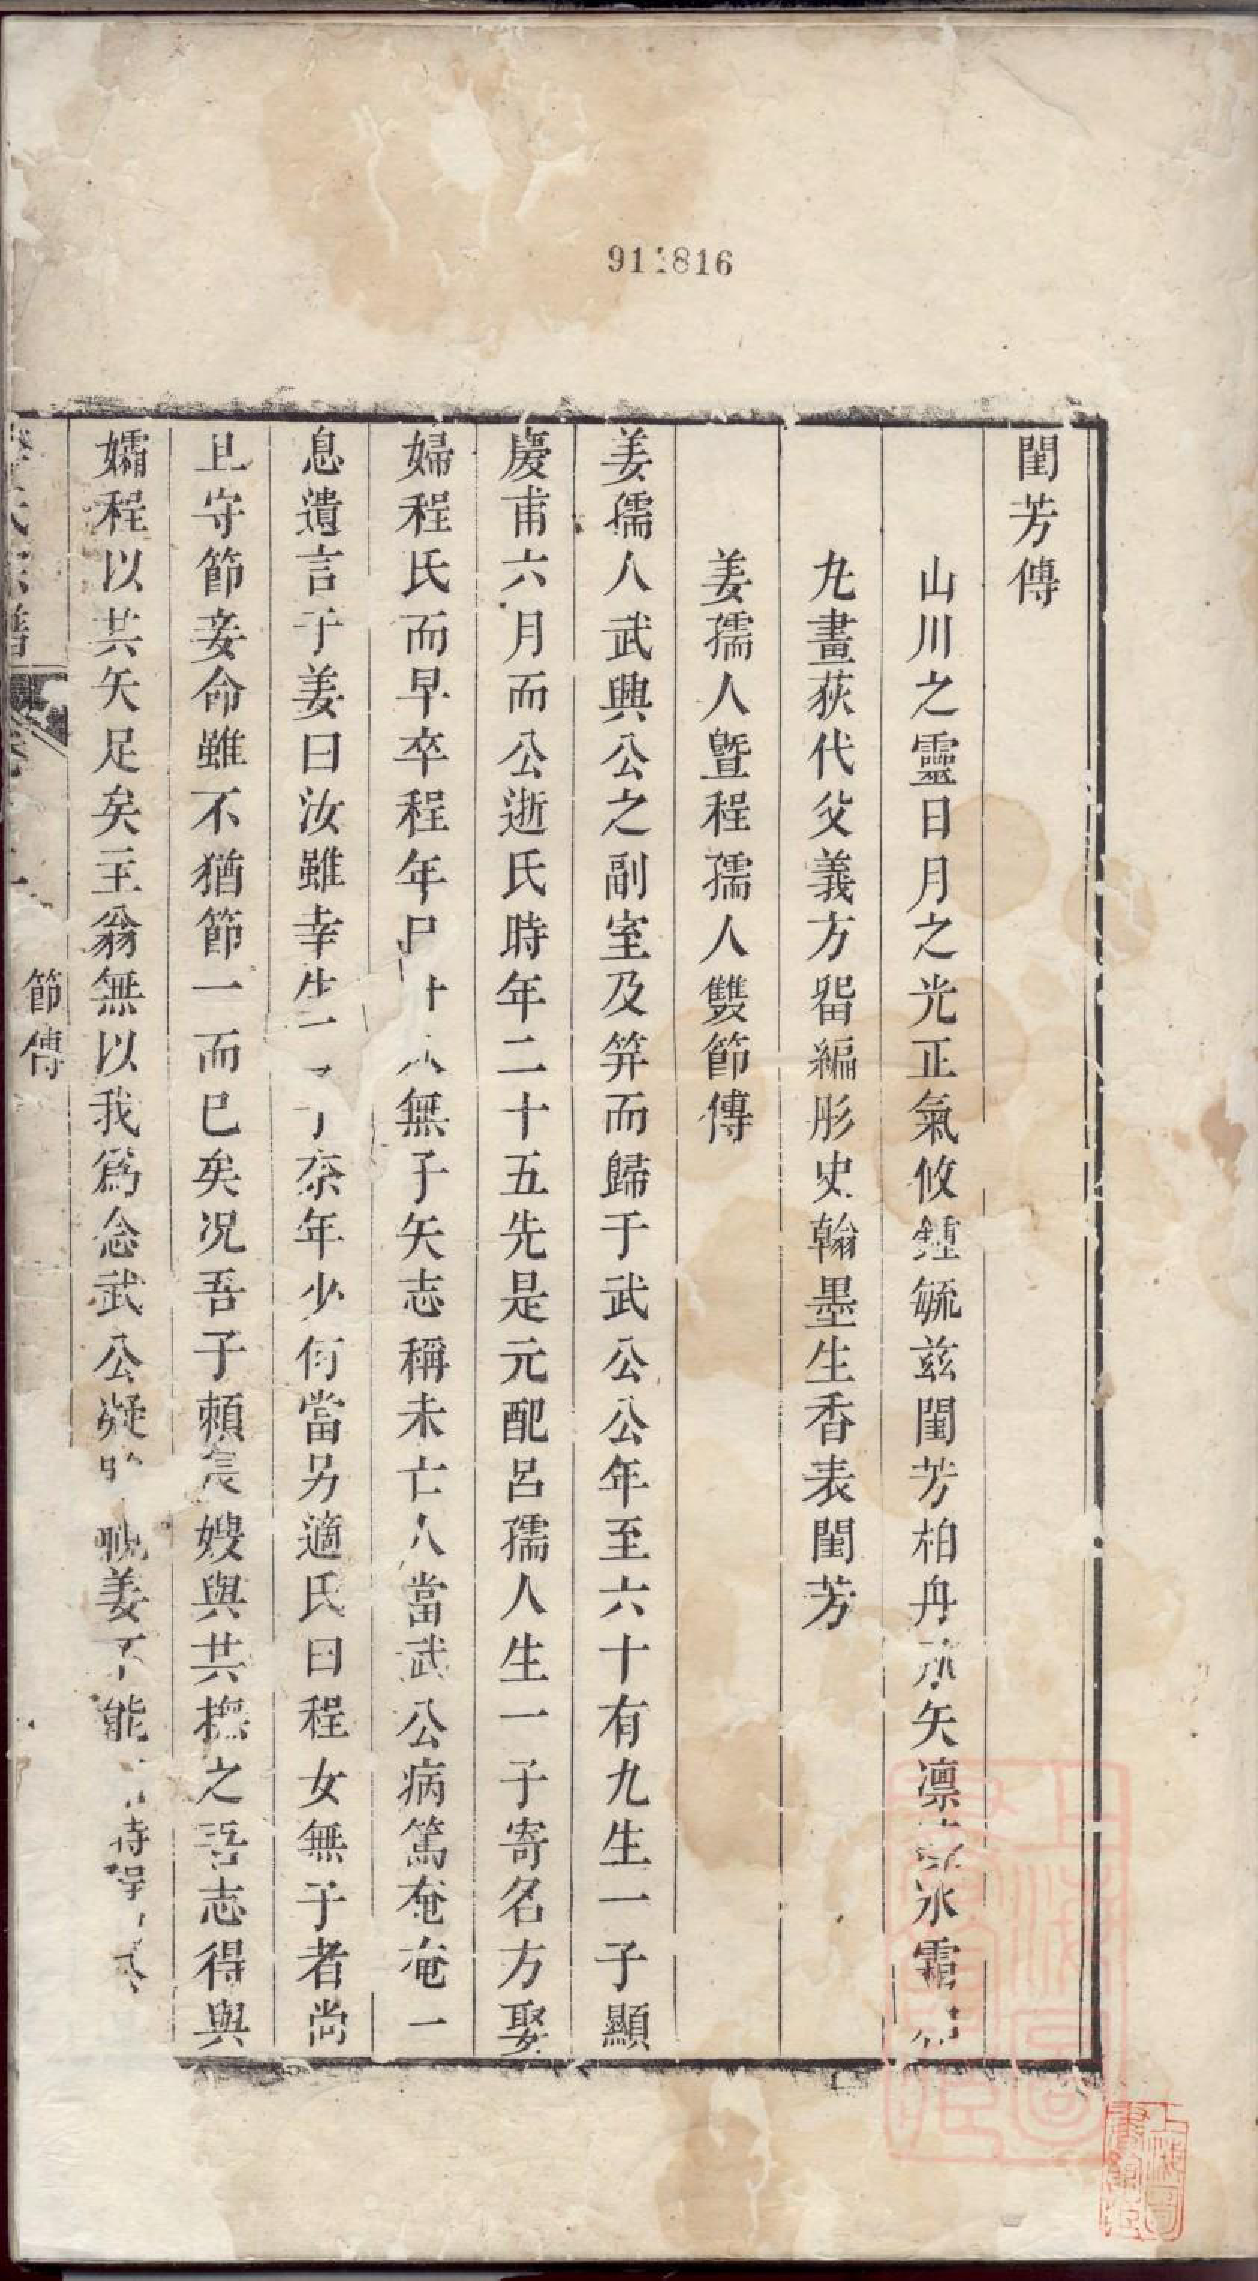 911816
閨芳傳
山川之靈日月之光正氣攸鍾毓兹閨芳柏舟永矢凛冰霜
九畫荻代父義方畱編彤史翰墨生香表閨芳
姜孺人暨程孺人雙節傳
姜孺人武興公之副室及笄而歸于武公公年至六十有九生一子顯
慶甫六月而公逝氏時年二十五先是元配呂孺人生一子寄名方娶
婦程氏而早卒程年無子矢志稱未亡人當武公病篤奄奄一
息遺言于姜曰汝雖幸生一子奈年少何當另適氏曰程女無子者尚
且守節妾命雖不猶節一而已矣况吾子賴長嫂與共撫之吾志得與
孀程以共矢足矣主翁無以我爲念武公凝姜不能待
節傳
上海圖書館藏
上海圖書館藏